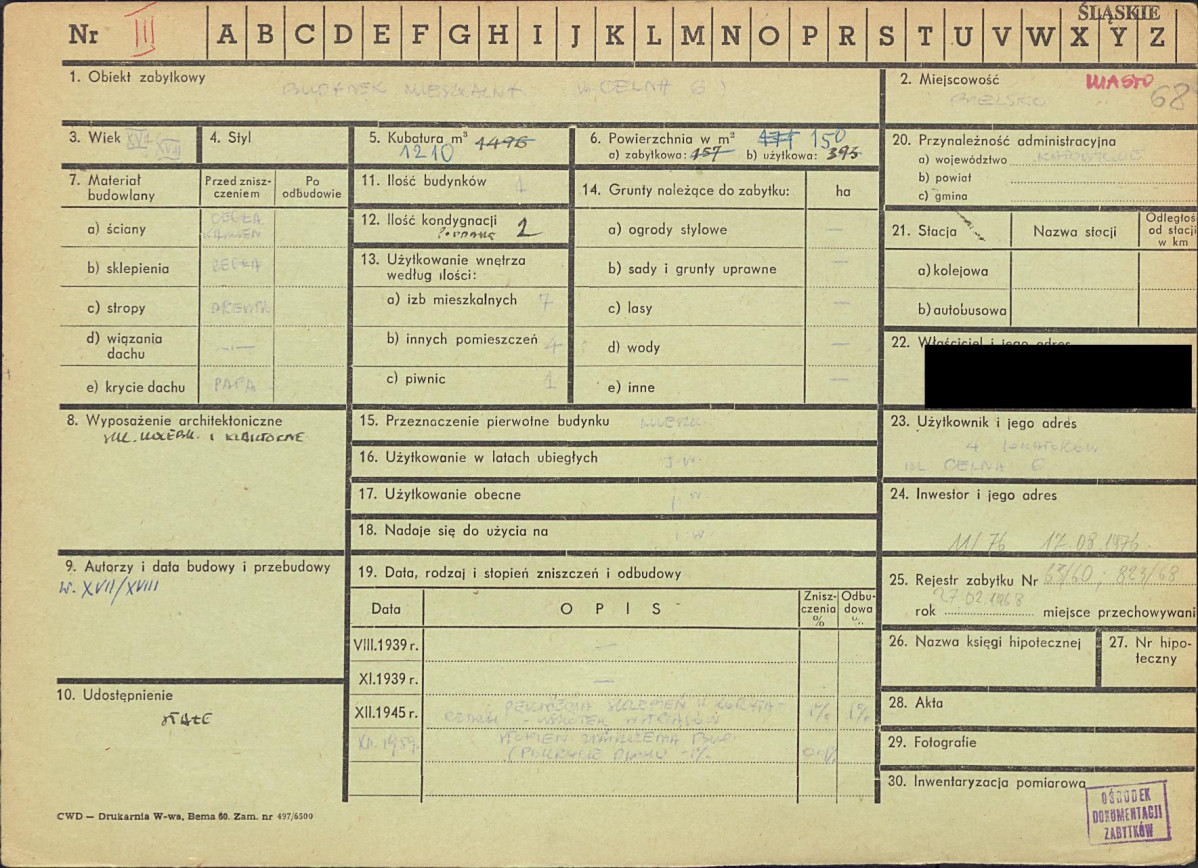 Nr III A B C D E F G H I J K L M N O P R S T U V W X Y Z
ŚLĄSKIE
1. Obiekt zabytkowy
BUDYNEK MIESZKALNY UL. CELNA 6
2. Miejscowość MIASTO
BIELSKO 68
3. Wiek XVII XVIII
4. Styl
5. Kubatura m³ 1496
1210
6. Powierzchnia w m² 171 150
a) zabytkowa: 157 b) użytkowa: 393
20. Przynależność administracyjna
a) województwo KATOWICE
b) powiat
c) gmina
7. Materiał budowlany
Przed zniszczeniem
Po odbudowie
a) ściany CEGŁA
KAMIEŃ
b) sklepienia CEGŁA
c) stropy DREWN.
d) wiązania dachu —
e) krycie dachu PAPA
11. Ilość budynków 1
12. Ilość kondygnacji
2
13. Użytkowanie wnętrza według ilości:
a) izb mieszkalnych 7
b) innych pomieszczeń 4
c) piwnic 1
14. Grunty należące do zabytku: ha
a) ogrody stylowe —
b) sady i grunty uprawne —
c) lasy —
d) wody —
e) inne —
21. Stacja
Nazwa stacji
Odległoś
od stacji
w km
a) kolejowa
b) autobusowa
22. Właściciel i jego adres
8. Wyposażenie architektoniczne
SKL. KOLEBK. I KLASZTORNE
15. Przeznaczenie pierwotne budynku MIESZK.
16. Użytkowanie w latach ubiegłych J.W.
17. Użytkowanie obecne J.W
18. Nadaje się do użycia na J.W
23. Użytkownik i jego adres
4 LOKATORÓW
UL CELNA 6
24. Inwestor i jego adres
11/76 17.08.1976.
9. Autorzy i data budowy i przebudowy
w. XVII/XVIII
19. Data, rodzaj i stopień zniszczeń i odbudowy
Data
O P I S
Zniszczenia %
Odbudowa %
VIII.1939 r. —
XI.1939 r. —
XII.1945 r. PĘKNIĘCIA SKLEPIEŃ W KORYTA-
RZACH - WSKUTEK WSTRZĄSÓW 1% 1%
XII.1959. STOPIEŃ ZNISZCZENIA BUD.
(POKRYCIE DACHU -1%
25. Rejestr zabytku Nr 63/60; 823/68
27.02.1968
rok miejsce przechowywani
26. Nazwa księgi hipotecznej
27. Nr hipoteczny
10. Udostępnienie
STAŁE
28. Akta
29. Fotografie
30. Inwentaryzacja pomiarowa
OŚRODEK
DOKUMENTACJI
ZABYTKÓW
CWD — Drukarnia W-wa, Bema 60. Zam. nr 497/6500